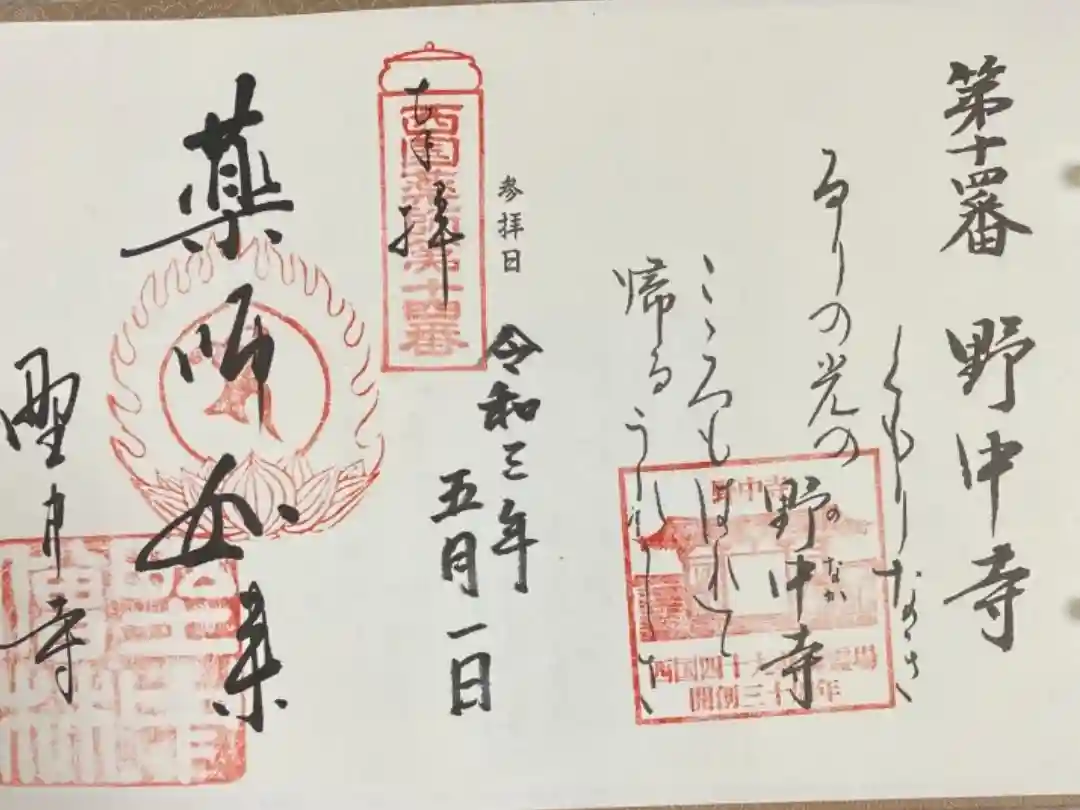 第十四番 野中寺
くもりなき
るりの光の野中寺
のなか
こゝろもはれて
帰るうれしさ
野中寺
西国四十九薬師霊場
開創三十周年
参拝日
令和三年
五月一日
奉拝
西国薬師第十四番
薬師如来
野中寺